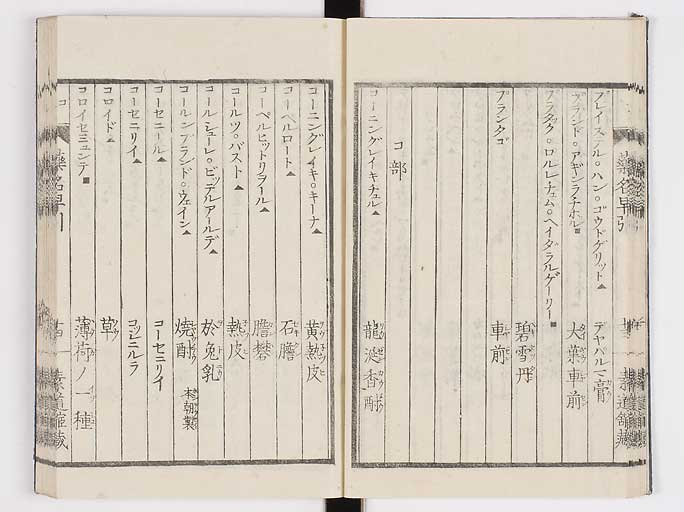 プレイステル○ハン○ゴウドゲリット▲ デヤパルマ膏
プランド○アギンラチホル■ 大葉車前
プラタク○ロルレチュム○ヘイダラルゲーリー■ 碧雪丹
プランタゴ 車前
コ部
コーニングレイキチュル▲ 龍涎香酎
コーニングレイキ○キーナ▲ 黄熱皮
コーヘルロート▲ 石膽
コーペルヒットリヲール▲ 膽礬
コールツ○バスト▲ 熱皮
コールシューレ○ビッテルアールデ▲ 於兔乳
コールンブランド○ウェイン▲ 焼酎 本朝製
コーセニール▲ コーセニリイ
コーセニリイ▲ コッレニルラ
コロイド▲ 草
コロイセミュンテ■ 薄荷ノ一種
コ 薬名早引 素道館蔵